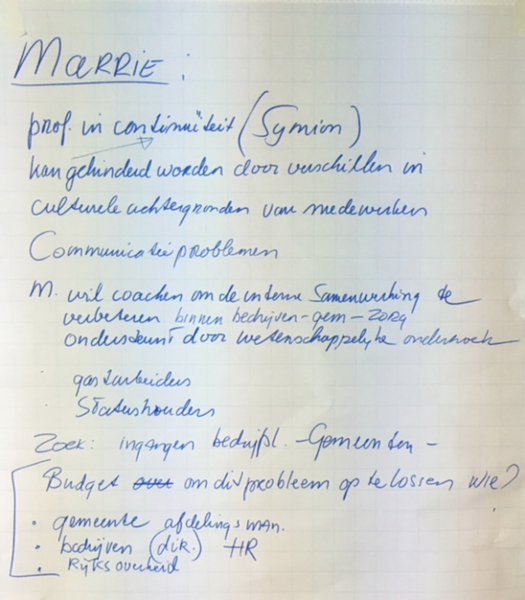 MARRIE:
prof. in continuïteit (Symion)
kan gehinderd worden door verschillen in
culturele achtergronden van medewerkers
Communicatie problemen
M. wil coachen om de interne Samenwerking te
verbeteren binnen bedrijven - gem - zorg
ondersteunt door wetenschappelijke onderzoek
gastarbeiders
Statushouders
Zoek: ingangen bedrijfsl. - Gemeenten -
Budget om dit probleem op te lossen wie?
• gemeente afdelings man.
• bedrijven (dir.) HR
• Rijksoverheid